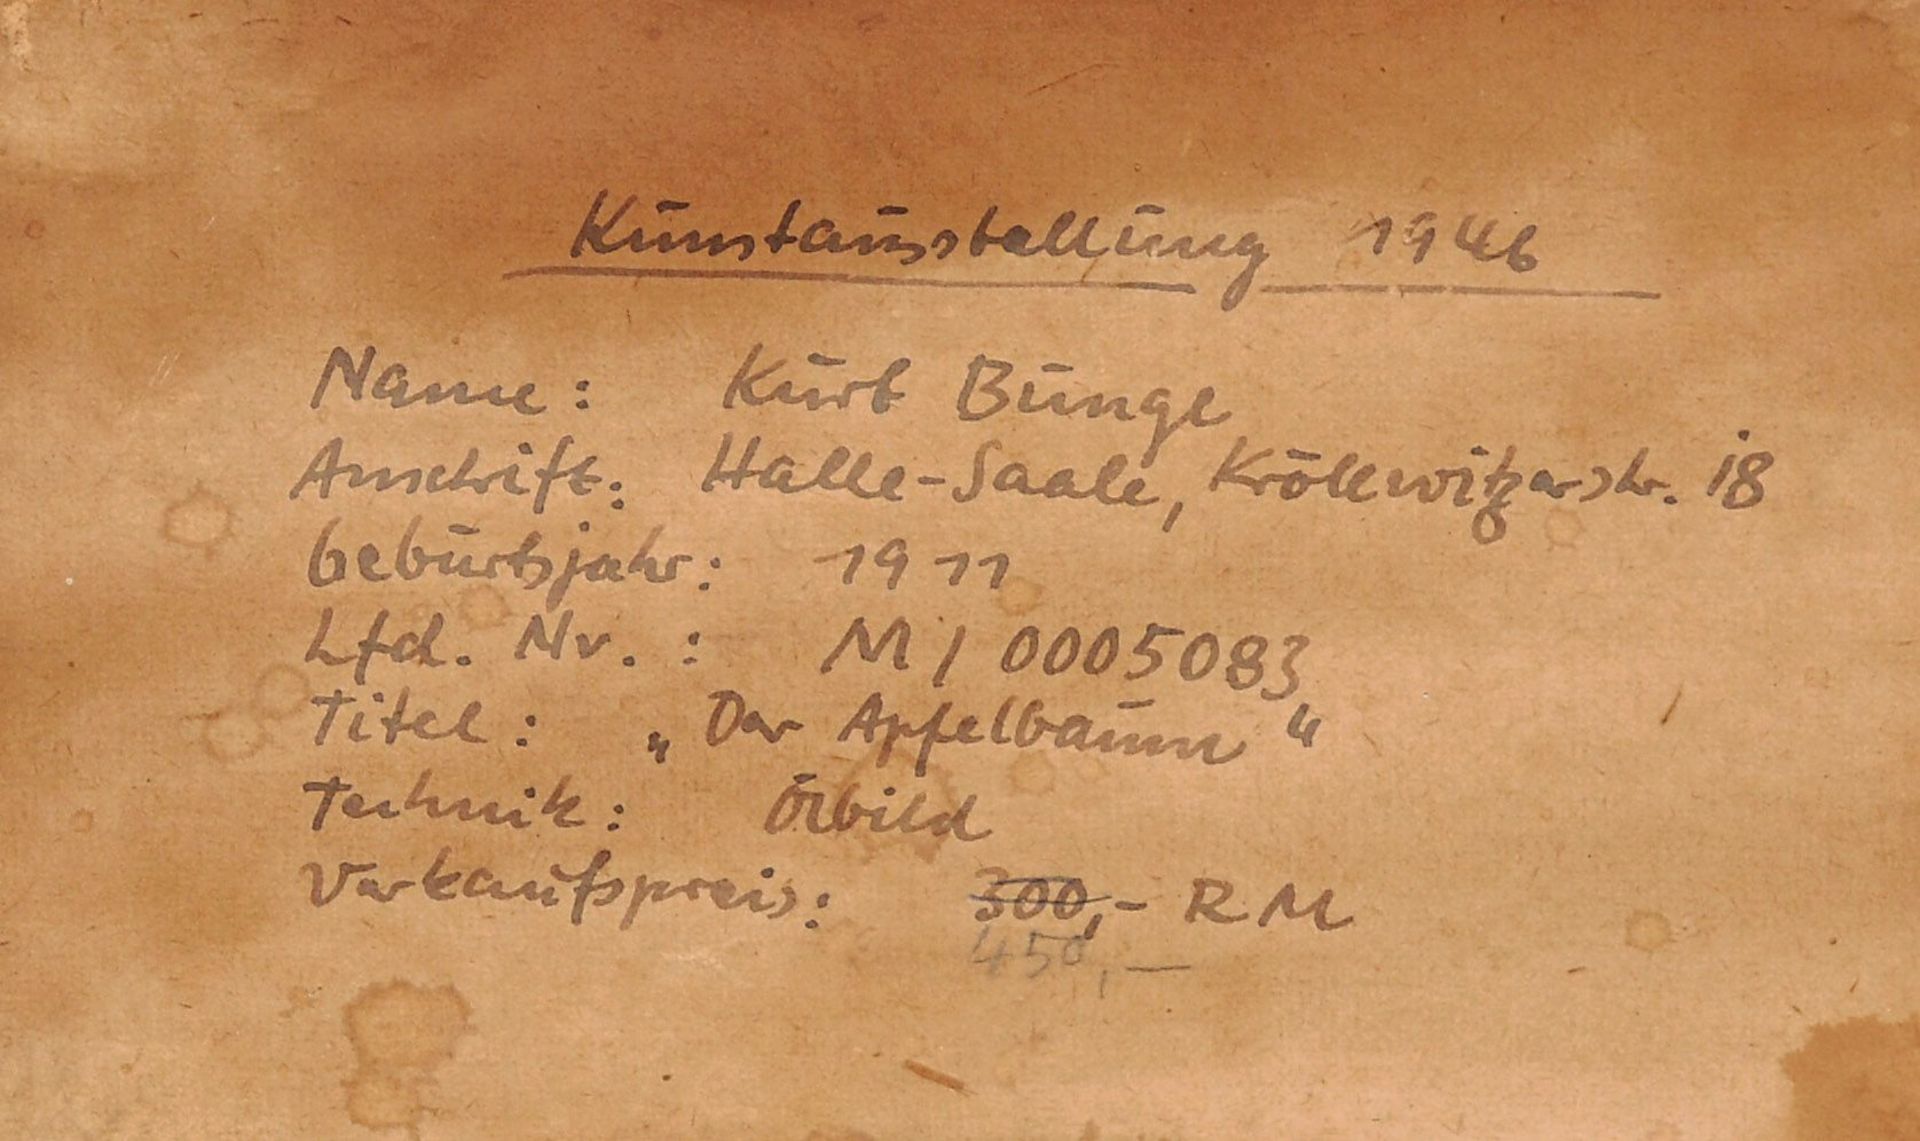 Kunstausstellung 1946
Name: Kurt Bunge
Anschrift: Halle-Saale, Kröllwitzerstr. 18
Geburtsjahr: 1911
Lfd. Nr.: M/0005083
Titel: „Der Apfelbaum“
Technik: Ölbild
Verkaufspreis: 300,- RM
450,—